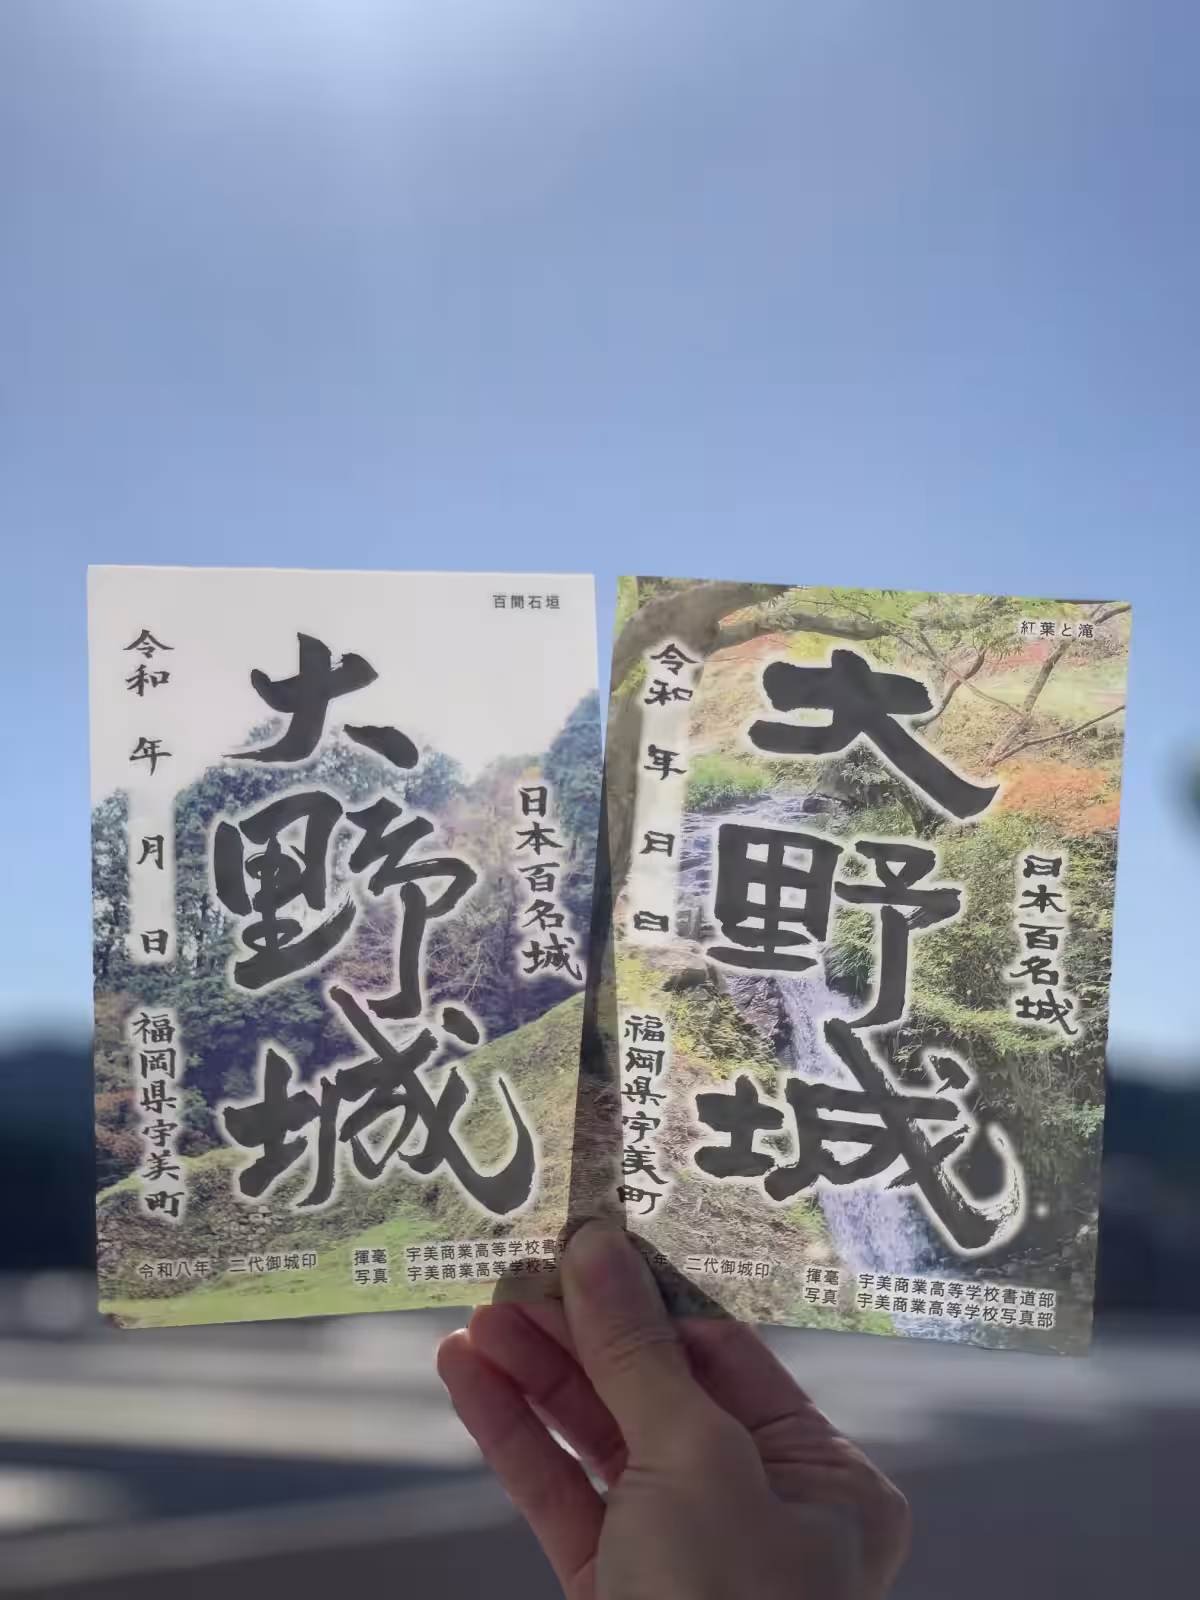 百間石垣
日本百名城
大野城
令和 年 月 日
福岡県宇美町
令和八年 二代御城印
揮毫 宇美商業高等学校書道
写真 宇美商業高等学校写
紅葉と滝
日本百名城
大野城
令和 年 月 日
福岡県宇美町
年 二代御城印
揮毫 宇美商業高等学校書道部
写真 宇美商業高等学校写真部